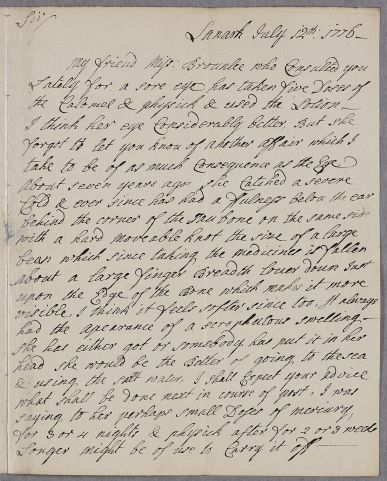 Sir/
Lanark July 12th: 1776
My friend Miss: Brounlee who Consulted you
Lately for a sore eye has taken five Doses of
the Calomel & physick & used the Lotion
I think her eye Considerably better But she
forgot to let you know of another affair which I
take to be of as much Consequence as the Eye
About seven years ago she Catched a severe
Cold & ever since has had a fulness below the ear
behind the corner of the Jaw bone on the same side
with a hard moveable knot the size of a large
bean which since taking the medicines is fallen
about a large finger Breadth lower down Just
upon the Edge of the Bone which makes it more
visible, I think it feels softer since too, It always
had the apearance of a scrophulous swelling
she has either got or somebody has put it in her
head she would be the Better of going to the sea
& using the salt water, I shall Expect your advice
what shall be done next in course of post, I was
saying to her perhaps small Doses of mercury
for 3 or 4 nights & physick after for 2 or 3 weeks
Longer might be of use to Carry it off